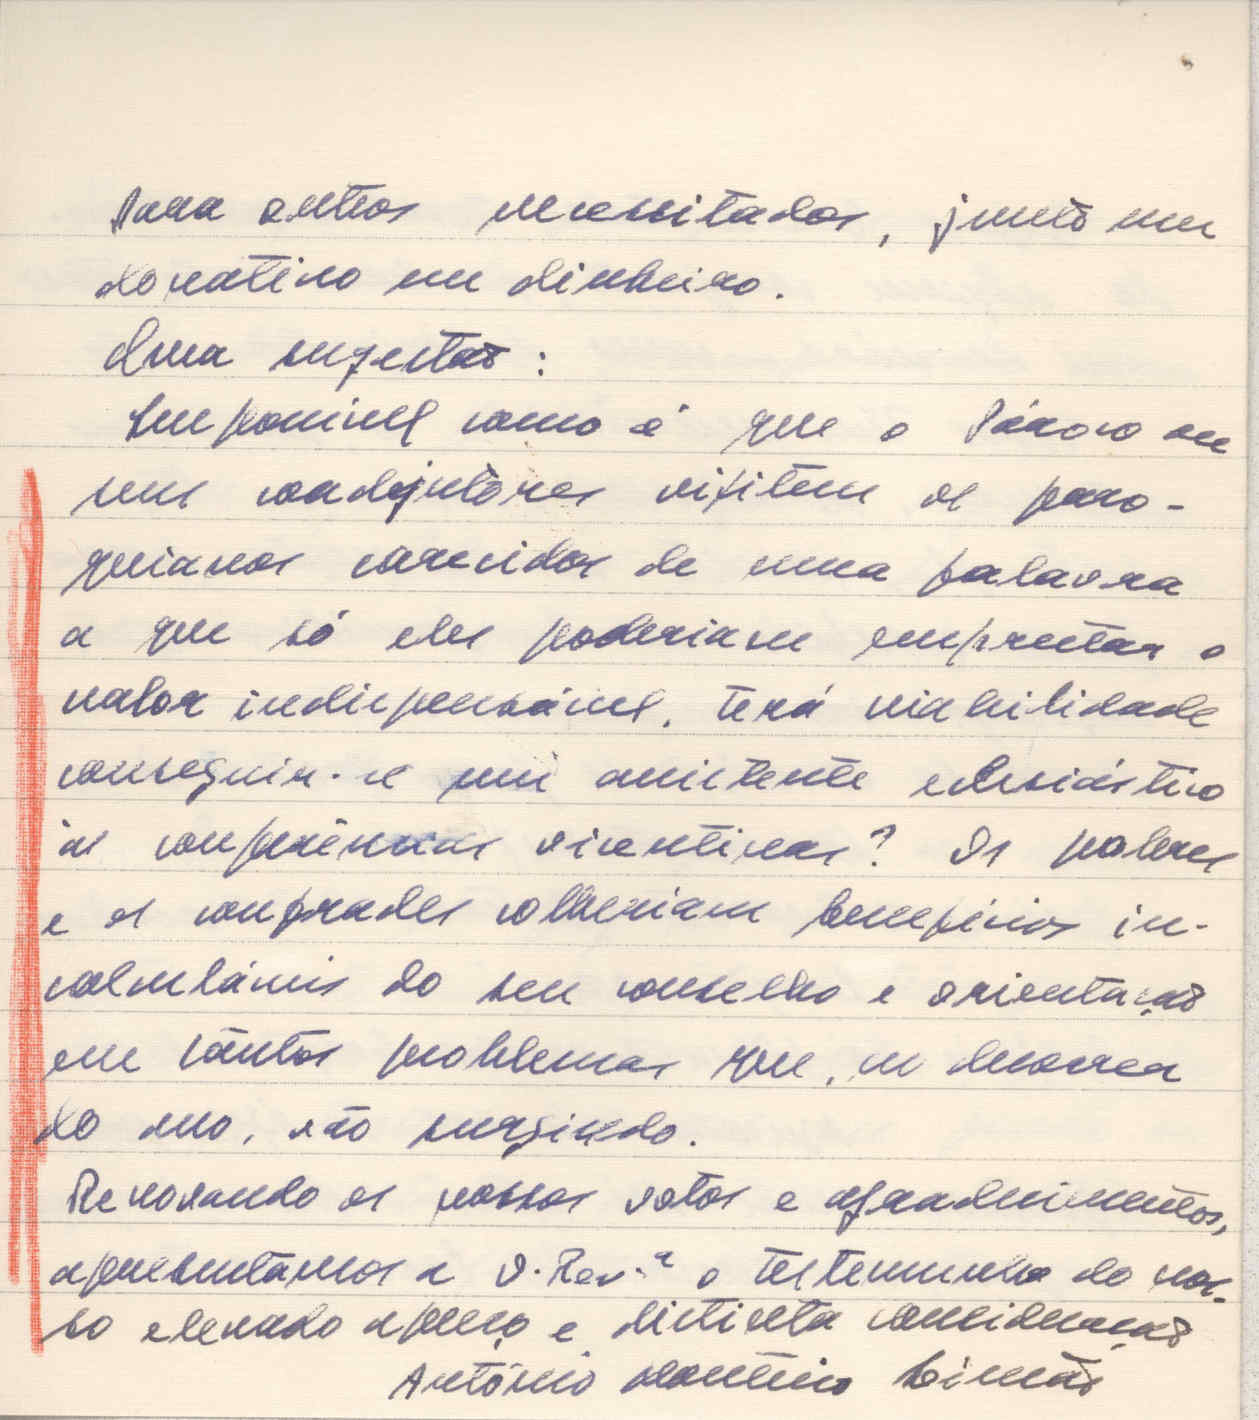 Para outros necessitados, junto um
donativo em dinheiro.
Uma sugestão:
Impossível como é que o Pároco ou
seus coadjutores visitem os paro-
quianos carecidos de uma palavra
a que só eles poderiam emprestar o
valor indispensável, terá viabilidade
conseguir-se um assistente eclesiástico
às conferências vicentinas? Os pobres
e os confrades colheriam benefícios in-
calculáveis do seu conselho e orientação
em tantos problemas que, no decorrer
do ano, vão surgindo.
Renovando os nossos votos e agradecimentos,
apresentamos a V. Rev.ª o testemunho do nos-
so elevado apreço e distinta consideração
António Simão